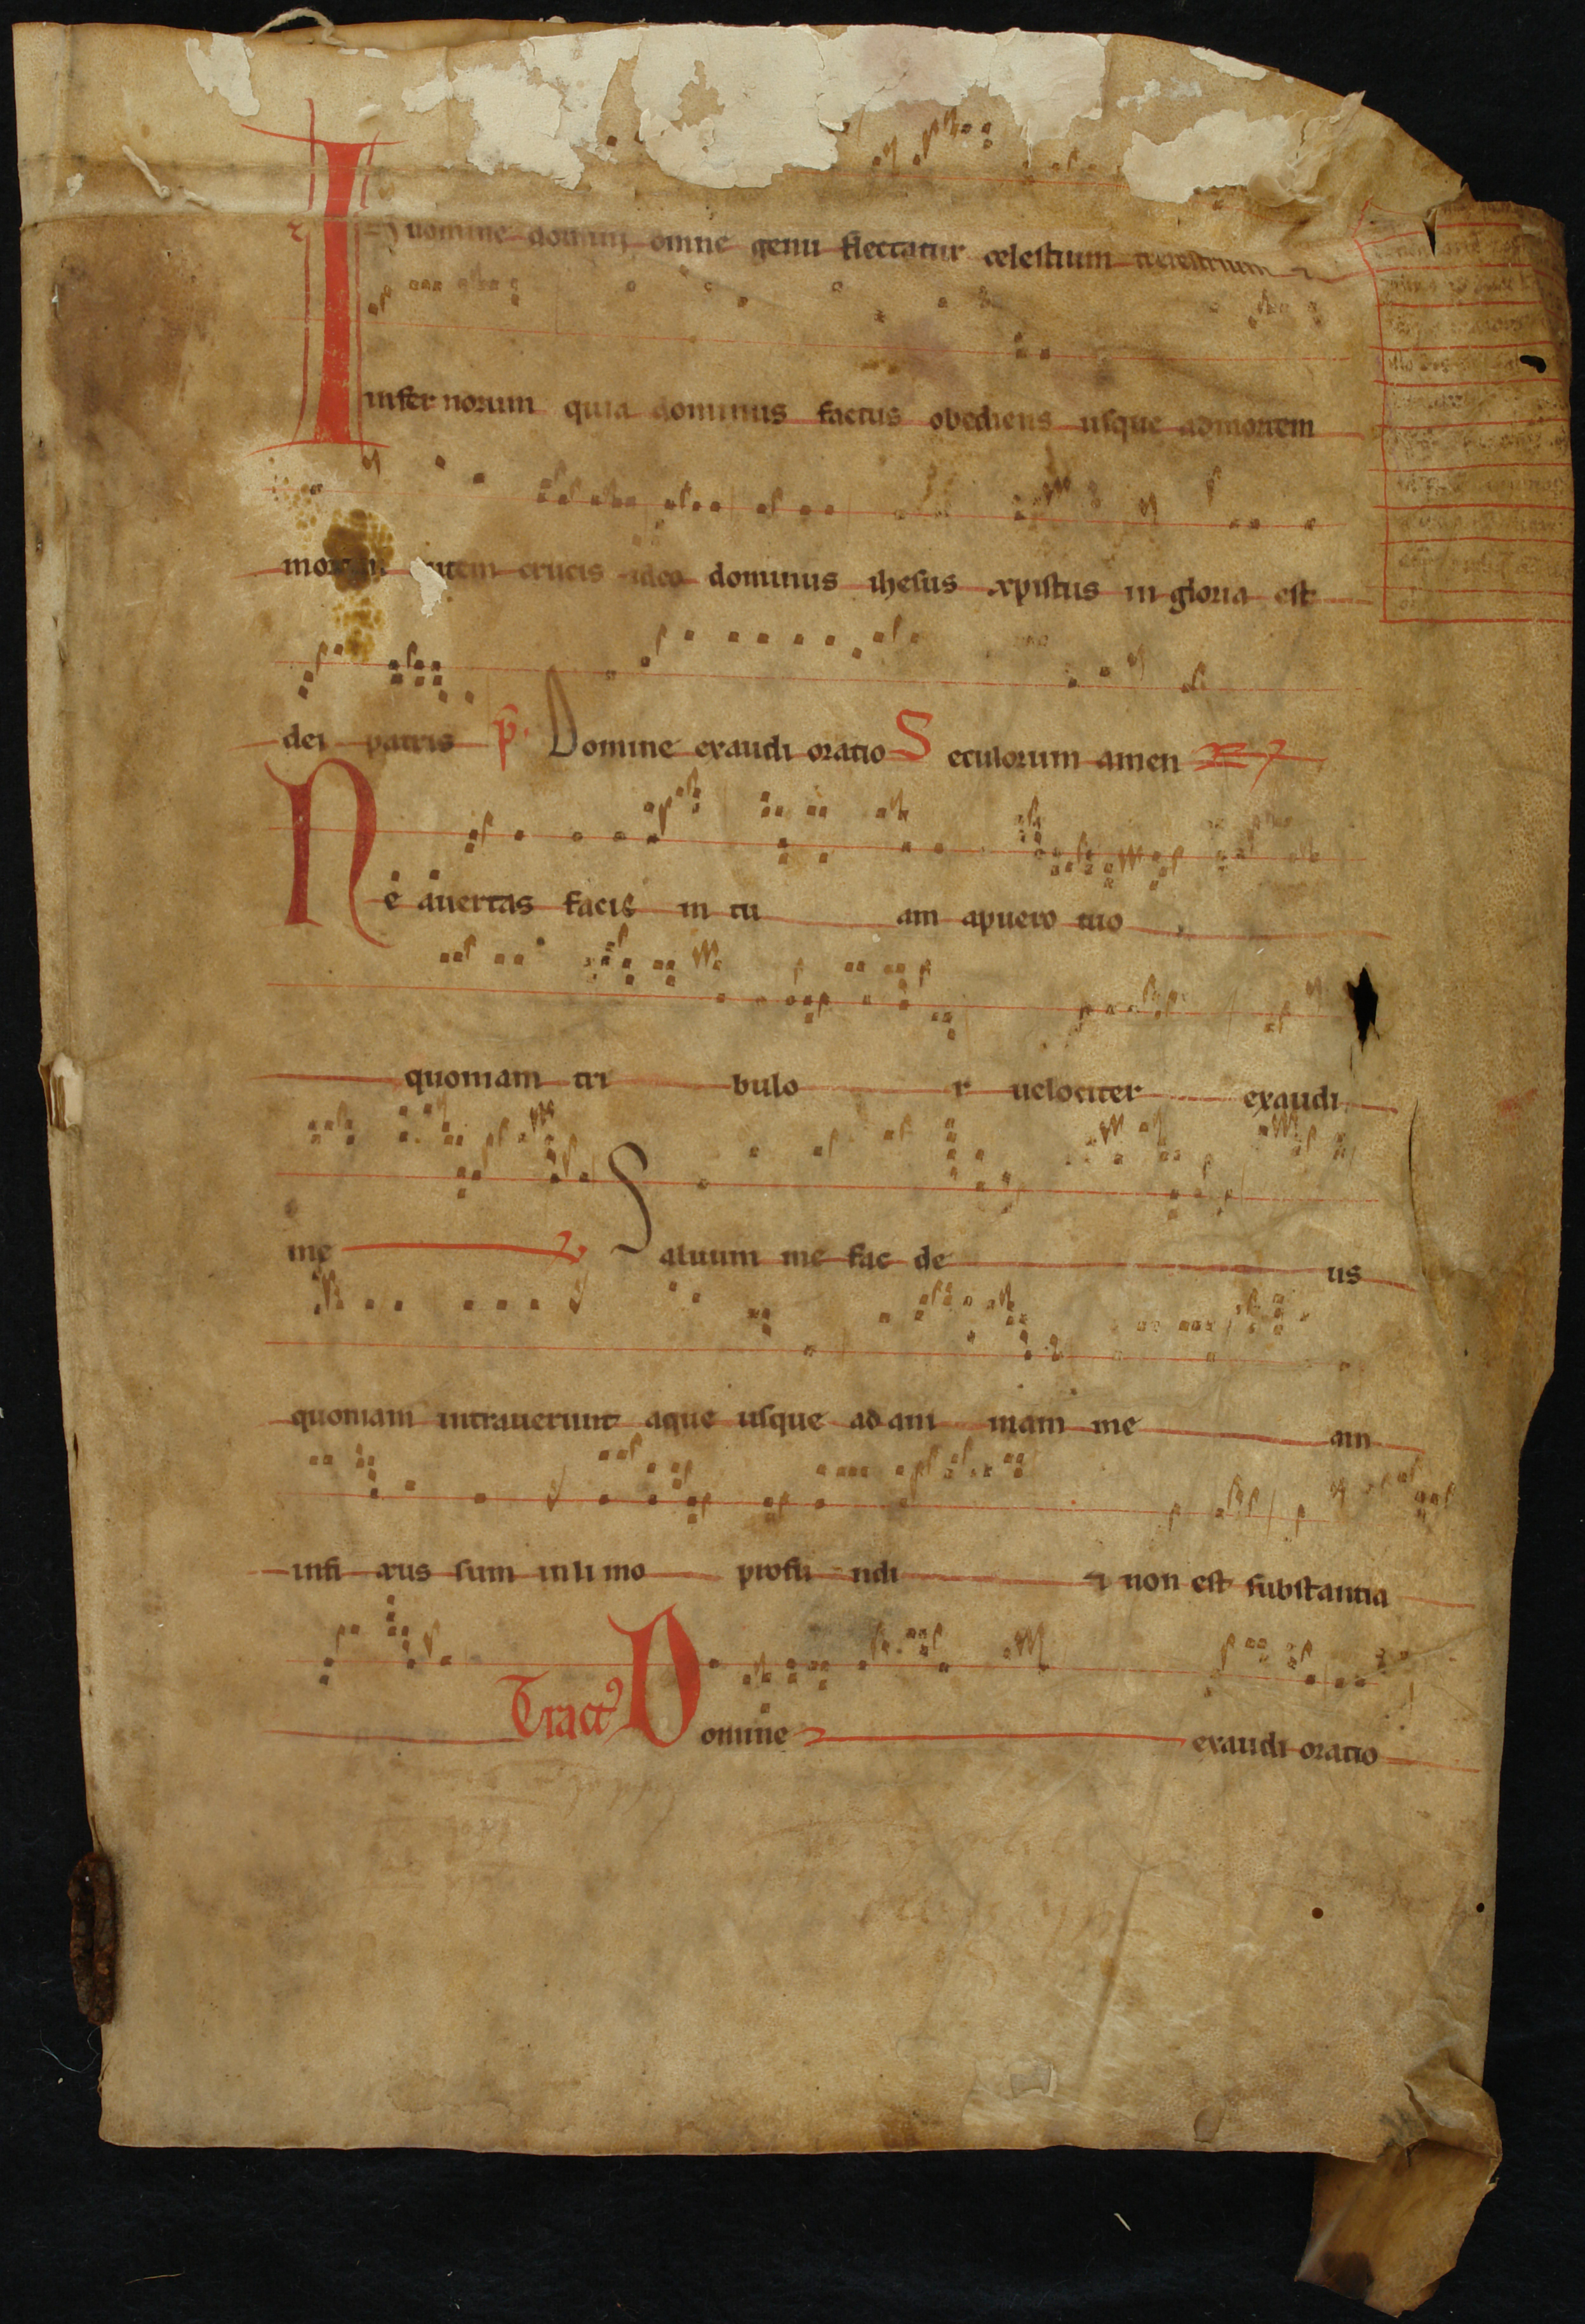 In nomine domini omne genu flectatur celestium terrestrium ⁊
infernorum quia dominus factus obediens usque ad mortem
mortem autem crucis ideo dominus ihesus xpistus in gloria est
dei patris p̄. Domine exaudi oratio Seculorum amen
Ne avertas faciē in tu am apuero tuo
quoniam tri bulo r uelociter exaudi
me Saluum me fac de us
quoniam intrauerunt aque usque ad ani mam me am
infi xus sum in li mo profu ndi ⁊ non est substantia
Tractꝰ Domine exaudi oratio